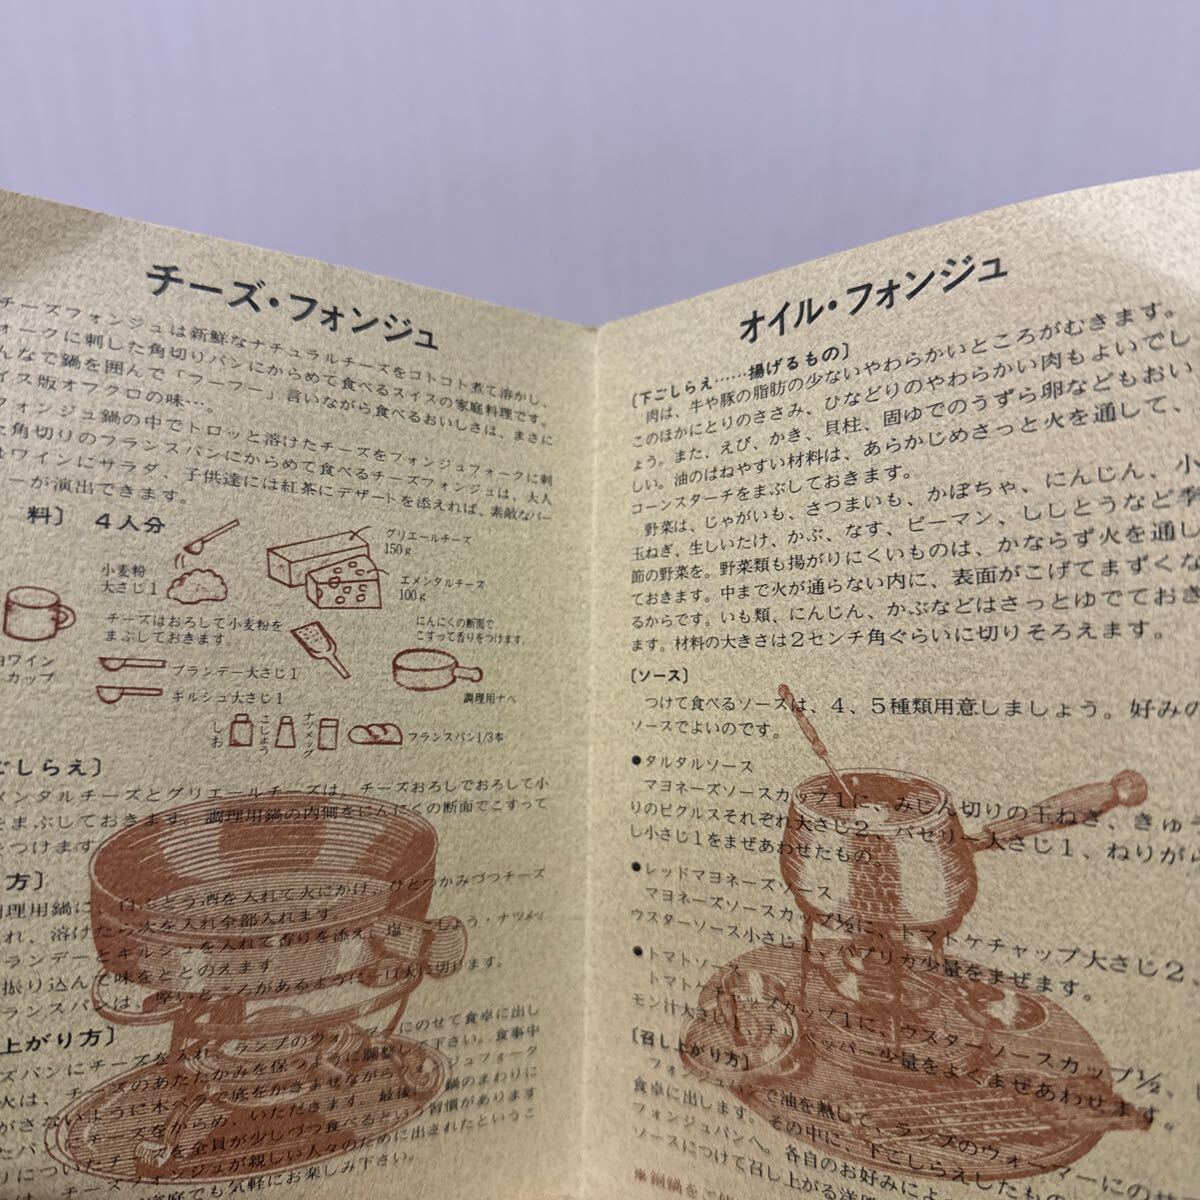 チーズ・フォンジュ
チーズフォンジュは新鮮なナチュラルチーズをコトコト煮て溶かし、
ォークに刺した角切りパンにからめて食べるスイスの家庭料理です。
んなで鍋を囲んで「フーフー」言いながら食べるおいしさは、まさに
イス版オフクロの味…。
フォンジュ鍋の中でトロッと溶けたチーズをフォンジュフォークに刺
た角切りのフランスパンにからめて食べるチーズフォンジュは、大人
はワインにサラダ、子供達には紅茶にデザートを添えれば、素敵なパー
ーが演出できます。
料〕 4人分
小麦粉
大さじ1
グリエールチーズ
150g
エメンタルチーズ
100g
チーズはおろして小麦粉を
まぶしておきます。
にんにくの断面で
こすって香りをつけます。
白ワイン
カップ
ブランデー大さじ1
キルシュ大さじ1
調理用ナベ
しお
こしょう
ナツメッグ
フランスパン1/3本
ごしらえ〕
メンタルチーズとグリエールチーズは、チーズおろしでおろして小
をまぶしておきます。調理用鍋の内側をにんにくの断面でこすって
をつけます。
方〕
調理用鍋に、白ぶどう酒を入れて火にかけ、ひとつかみづつチーズ
れ、溶けたら火を入れ全部入れます。
ランデーとキルシュを入れて香りを添え、塩・こしょう・ナツメッ
振り込んで味をととのえます。
ランスパンは、堅いところがあるように一口大に切ります。
上がり方〕
ズパンにチーズを入れ、ランプのウォーマーにのせて食卓に出し
火は、チーズのあたたかみを保つように調整して下さい。食事中
がさないように木ベラで底をかきまぜながらフォンジュフォーク
たパンにチーズをからめ、いただきます。最後に、鍋のまわりに
りについたチーズを全員が少しづつ食べるという習慣があります
は、チーズフォンジュが親しい人々のために出されたというこ
家庭でも気軽にお楽しみ下さい。
オイル・フォンジュ
〔下ごしらえ……揚げるもの〕
肉は、牛や豚の脂肪の少ないやわらかいところがむきます。
このほかにとりのささみ、ひなどりのやわらかい肉もよいでし
ょう。また、えび、かき、貝柱、固ゆでのうずら卵などもおい
しい。油のはねやすい材料は、あらかじめさっと火を通して、
コーンスターチをまぶしておきます。
野菜は、じゃがいも、さつまいも、かぼちゃ、にんじん、小
玉ねぎ、生しいたけ、かぶ、なす、ピーマン、ししとうなど季
節の野菜を。野菜類も揚がりにくいものは、かならず火を通し
ておきます。中まで火が通らない内に、表面がこげてまずくな
るからです。いも類、にんじん、かぶなどはさっとゆでておき
ます。材料の大きさは2センチ角ぐらいに切りそろえます。
〔ソース〕
つけて食べるソースは、4、5種類用意しましょう。好みの
ソースでよいのです。
●タルタルソース
マヨネーズソースカップ1に、みじん切りの玉ねぎ、きゅう
りのピクルスそれぞれ大さじ2、パセリー大さじ1、ねりがら
し小さじ1をまぜあわせたもの。
●レッドマヨネーズソース
マヨネーズソースカップ½に、トマトケチャップ大さじ2、
ウスターソース小さじ1、パプリカ少量をまぜます。
●トマトソース
トマトケチャップカップ1に、ウスターソースカップ½、
モン汁大さじ1、チリペッパー少量をよくまぜあわせます。
〔召し上がり方〕
フォンジュパンで油を熱して、ランプのウォーマーにの
食卓に出します。その中に、下ごしらえしたもの
フォンジュパンへ。各自のお好みによ
ソースにつけて召し上がる洋
※銅鍋をご使